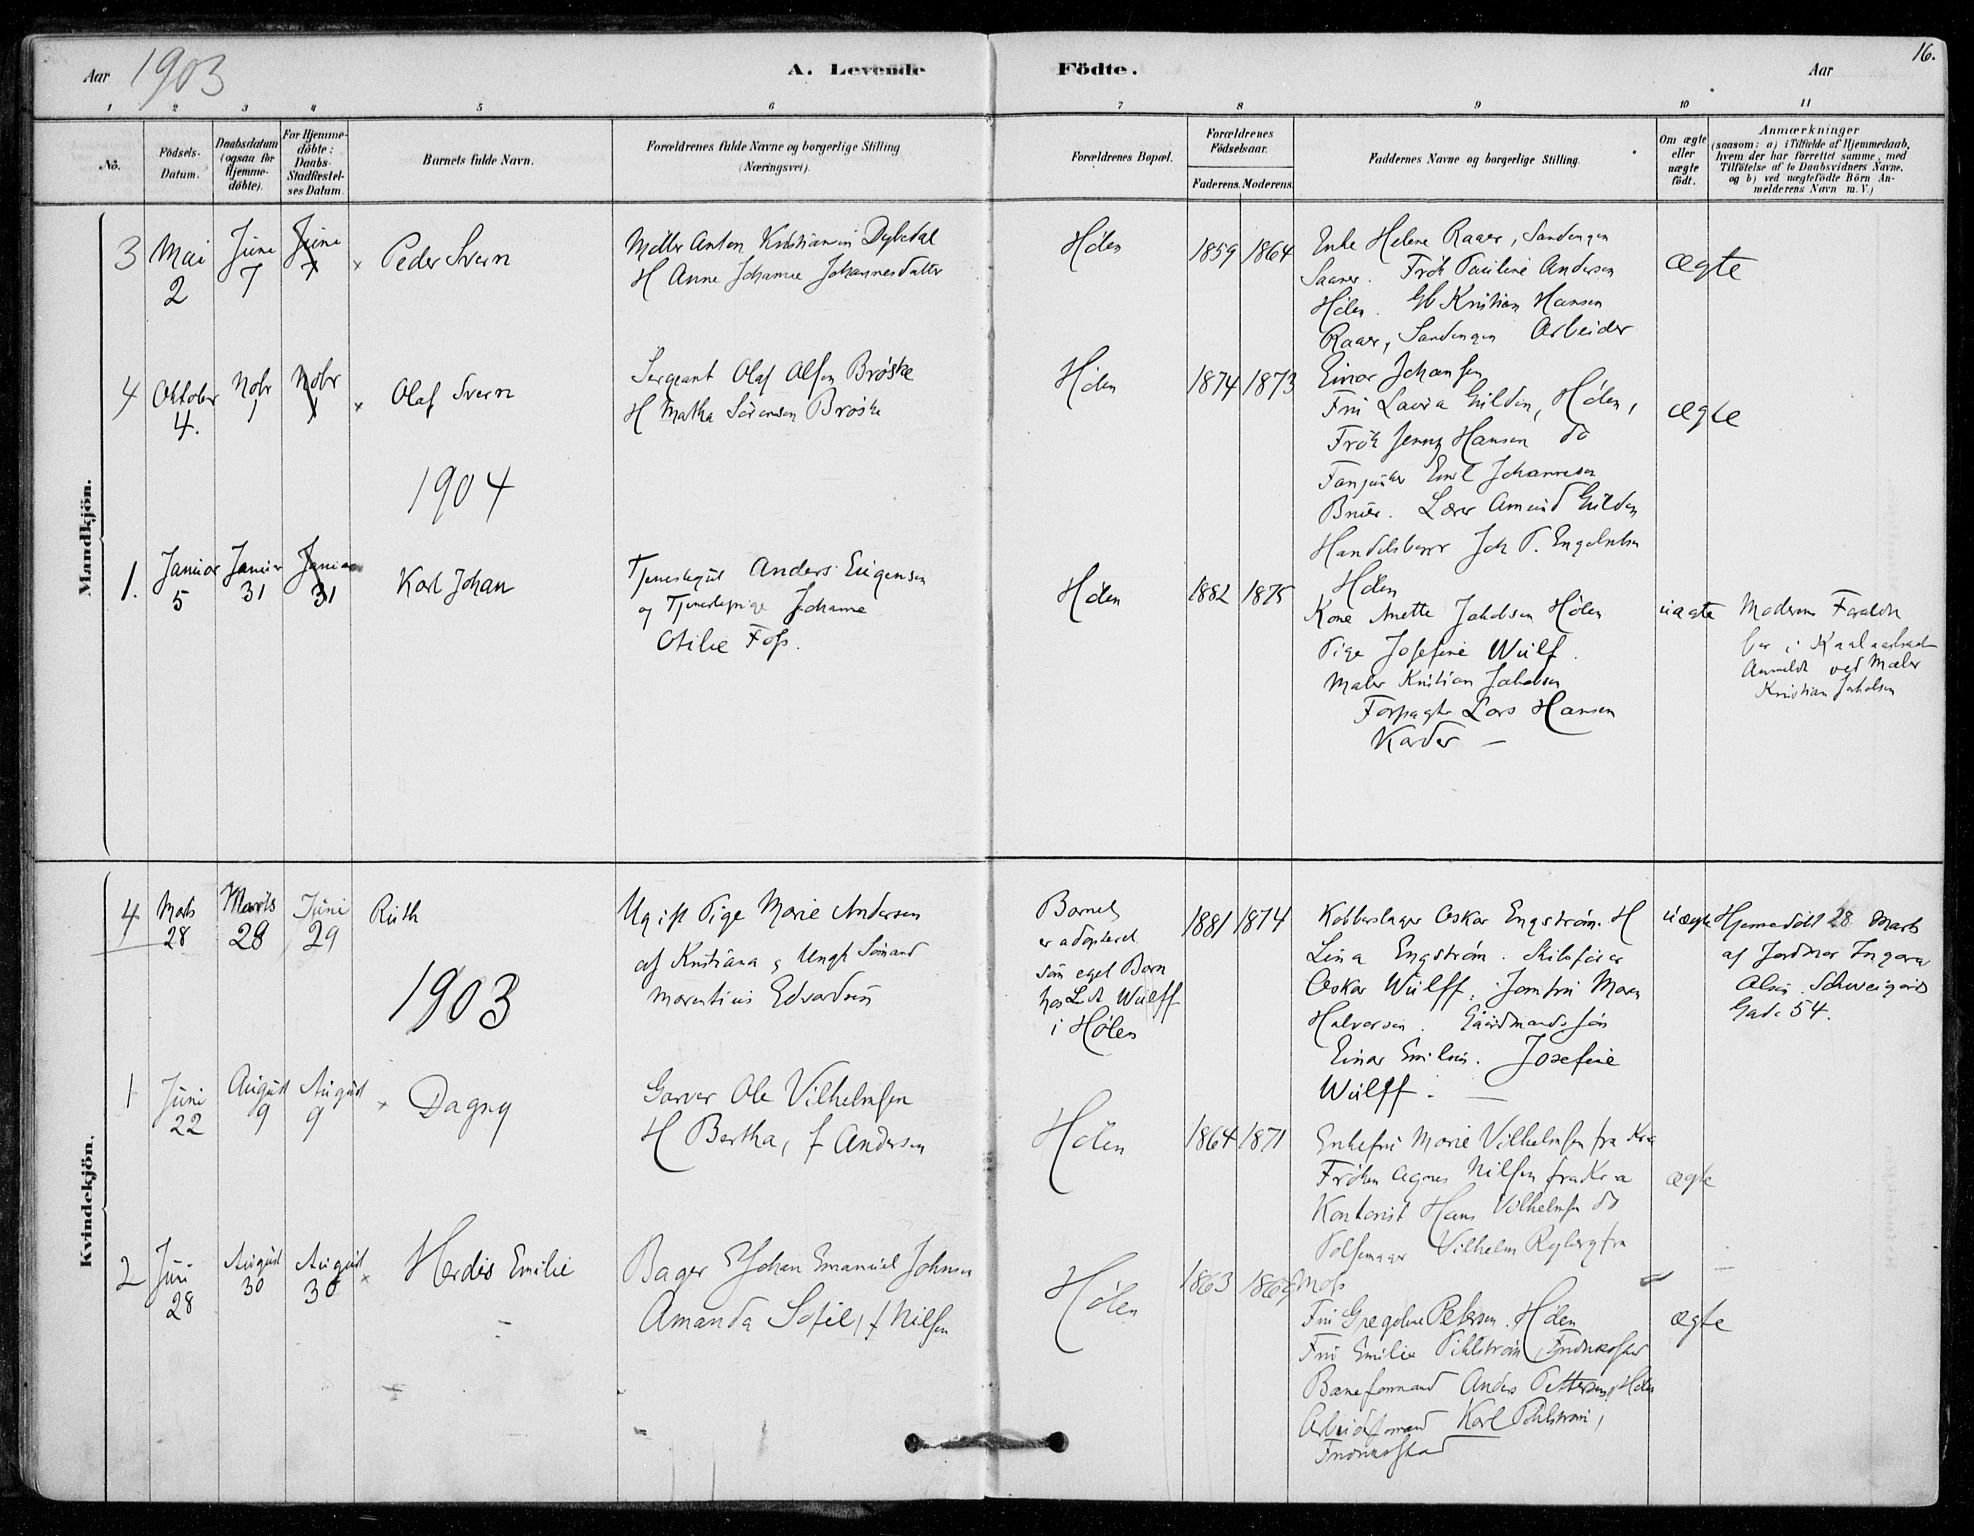 Aar 1903
A. Levende Födte.
Aar
16.
1 2 3 4 5 6 7 8 9 10 11
No.
Födsels-Datum.
Daabsdatum (ogsaa for Hjemme-döbte).
For Hjemme-döbte: Daabs-Stadfæstel-ses Datum.
Barnets fulde Navn.
Forældrenes fulde Navne og borgerlige Stilling (Næringsvei).
Forældrenes Bopæl.
Forældrenes Födselsaar.
Faderens. Moderens.
Faddernes Navne og borgerlige Stilling.
Om ægte eller uægte födt.
Anmærkninger
(saasom: a) i Tilfælde af Hjemmedaab,
hvem der har forrettet samme, med
Tilföielse af to Daabsvidners Navne,
og b) ved uægtefödte Börn An-
melderens Navn m. V.)
Mandkjön.
3
Mai 2
Juni 7
Juni 7
× Peder Svern
Möller Anton Kristiansen Dybedal
H Anne Johanne Johannesdatter
Hölen
1859 1864
Enke Helene Raaer, Sandengen
Saaner. Frök Pauline Andersen
Hölen. Gb Kristian Hansen
Raaer, Sandengen Arbeider
Einar Johansen
ægte
4
Oktober 4.
Nobr 1
Nobr 1
× Olaf Svern
Sergeant Olaf Olsen Bröske
H Mathea Sörensen Bröske
Hölen
1874 1873
Fru Laura Gulden, Hölen,
Frök Jenny Hansen do
Fanejunker Emil Johannesen
Bruer. Lærer Amund Gulden
Handelsberr Joh P. Engelsen
Hölen
ægte
1904
1.
Januar 5
Januar 31
Januar 31
Karl Johan
Tjenestegut Anders Eugensen
og Tjenestepige Johanne
Otilie Foss.
Hölen
1882 1875
Kone Anette Jakobsen Hölen
Pige Josefine Wulf.
Maler Kristian Jakobsen
Forpagter Lars Hansen
Korder —
uægte
Moderens Forældre
bor i
Anmeldt ved Maler
Kristian Jakobsen
Kvindekjön.
4
Marts 28
Marts 28
Juni 29
Ruth
Ugift Pige Marie Andersen
af Kristiana og Ungk Sömand
Martinius Edvardsen
Barnet
er adopteret
som eget Barn
hos L A Wulff
i Hölen
1881 1874
Kobberslager Oskar Engström. H
Lina Engström. Skibsförer
Oskar Wulff. Jomfru Maren
Halvorsen. Gaardmandssön
Einar Emilsen. Josefine
Wulff. —
uægte
Hjemmedöbt 28 Marts
af Jordmor Ingara
Olsen. Schweigaards
Gade 54.
1903
1
Juni 22
August 9
August 9
× Dagny
Garver Ole Vilhelmsen
H Bertha, f Andersen
Hölen
1864 1871
Enkefru Marie Vilhelmsen fra Kra
Fröken Agnes Nilsen fra Kr a
Kontorist Hans Vilhelmsen do
Pölsemager Vilhelm Rygberg fra
Moss
ægte
2
Juni 28
August 30
August 30
× Herdis Emilie
Bager Johan Emanuel Johnsen
Amanda Sofie, f Nilsen
Hölen
1863 1869
Fru Gregoline Petersen. Hölen
Fru Emilie Pihlström, Fredrikstad
Baneformand Anders Pettersen, Hölen
Arbeidsformand Karl Pihlström,
Fredrikstad
ægte